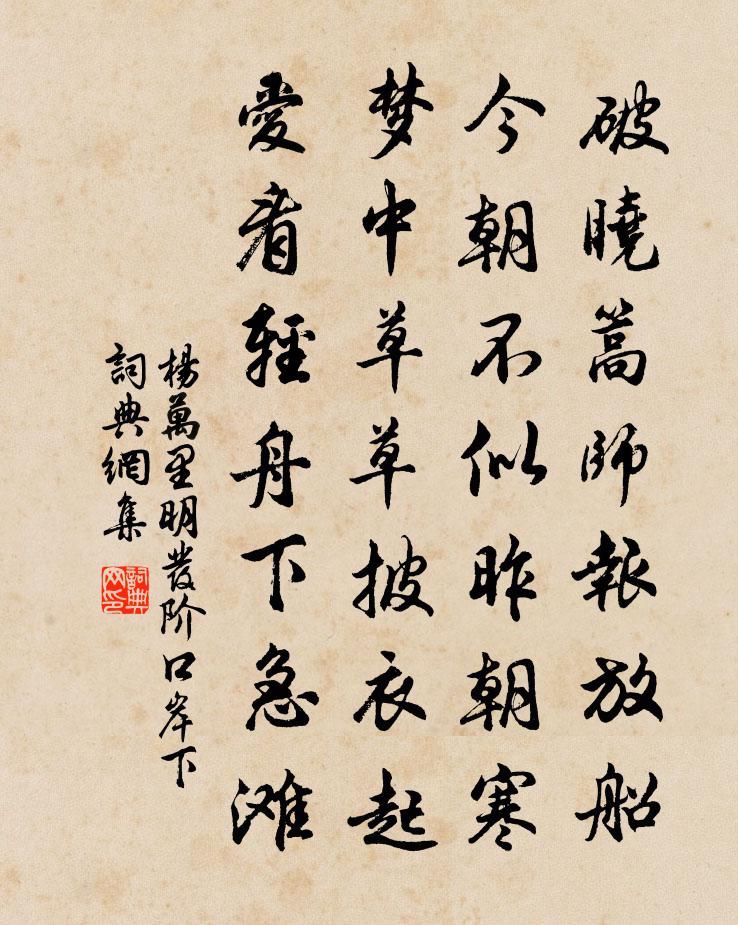 破曉篙師報放船
今朝不似昨朝寒
梦中草草披衣起
愛看輕舟下急滩
楊萬里明發阶口岸下
詞典網集
詞典
网印